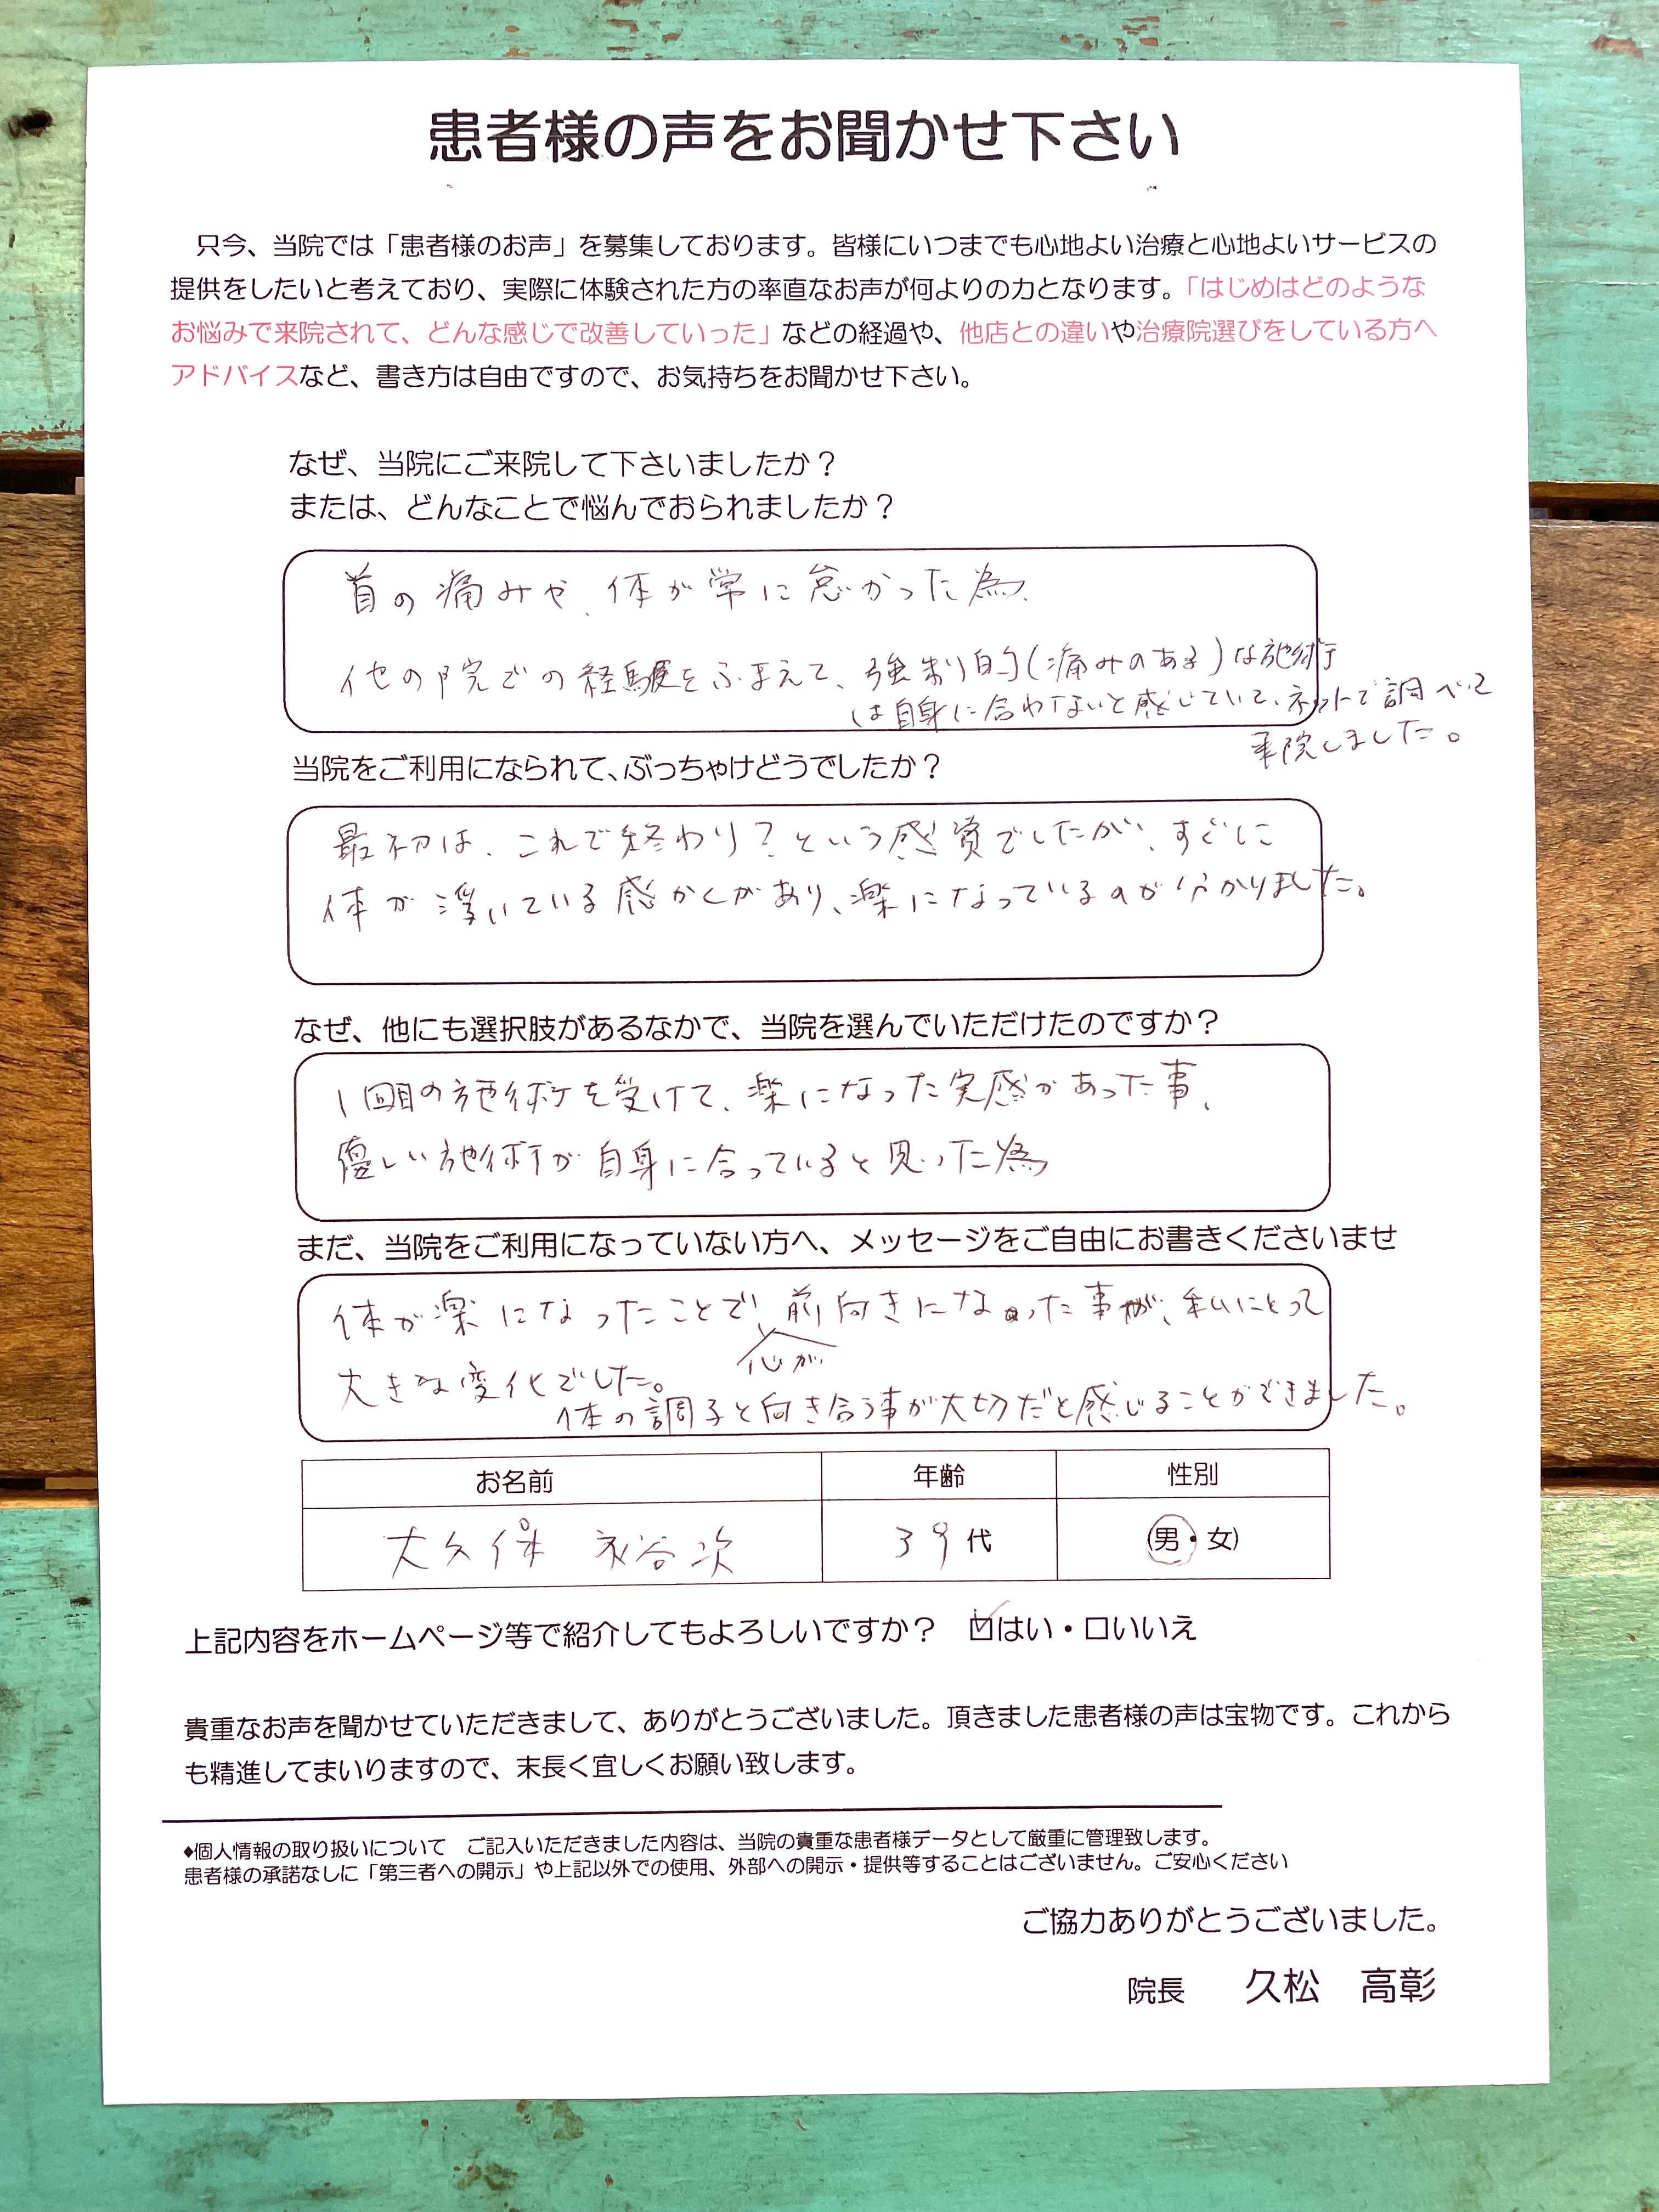 患者様の声をお聞かせ下さい
只今、当院では「患者様のお声」を募集しております。皆様にいつまでも心地よい治療と心地よいサービスの
提供をしたいと考えており、実際に体験された方の率直なお声が何よりの力となります。「はじめはどのような
お悩みで来院されて、どんな感じで改善していった」などの経過や、他店との違いや治療院選びをしている方へ
アドバイスなど、書き方は自由ですので、お気持ちをお聞かせ下さい。
なぜ、当院にご来院して下さいましたか？
または、どんなことで悩んでおられましたか？
首の痛みや、体が常に怠かった為、
他の院での経験をふまえて、強制的(痛みのある)な施術
は自身に合わないと感じていて、ネットで調べて
来院しました。
当院をご利用になられて、ぶっちゃけどうでしたか？
最初は、これで終わり？という感質でしたが、すぐに
体が浮いている感かくがあり、楽になっているのが分かりました。
なぜ、他にも選択肢があるなかで、当院を選んでいただけたのですか？
1回目の施術を受けて、楽になった実感があった事、
優しい施術が自身に合っていると思った為
まだ、当院をご利用になっていない方へ、メッセージをご自由にお書きくださいませ
体が楽になったことで、前向きになった事が、私にとって
心が
大きな変化でした。
体の調子と向き合う事が大切だと感じることができました。
お名前 年齢 性別
大久保 谷次 39代 (男・女)
上記内容をホームページ等で紹介してもよろしいですか？ ☑はい・☐いいえ
貴重なお声を聞かせていただきまして、ありがとうございました。頂きました患者様の声は宝物です。これから
も精進してまいりますので、末長く宜しくお願い致します。
♦個人情報の取り扱いについて ご記入いただきました内容は、当院の貴重な患者様データとして厳重に管理致します。
患者様の承諾なしに「第三者への開示」や上記以外での使用、外部への開示・提供等することはございません。ご安心ください
ご協力ありがとうございました。
院長 久松 高彰